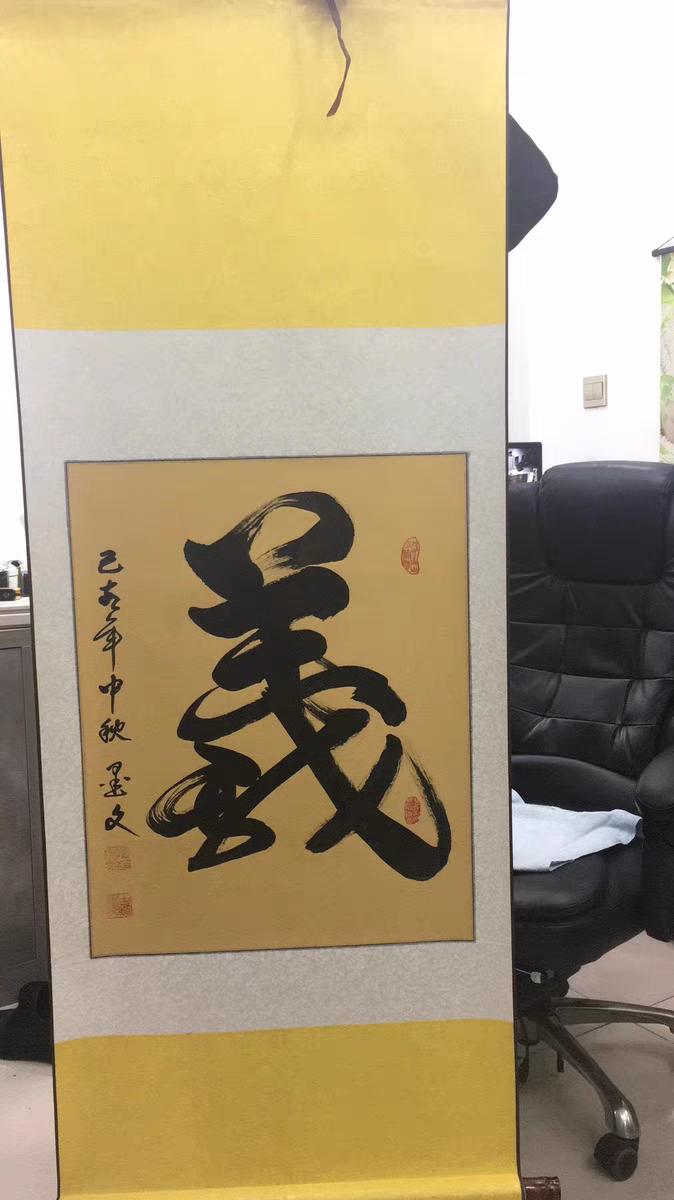 義
己亥年中秋墨文